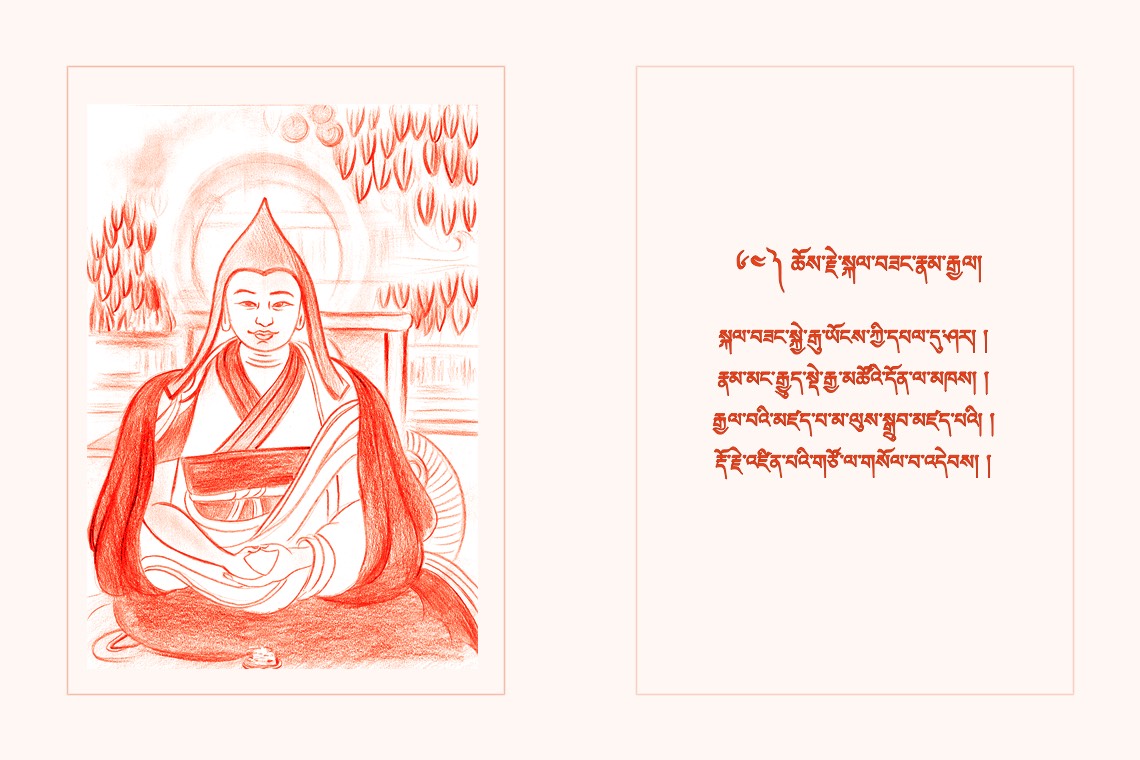 ༦༤༽ ཆོས་རྗེ་སྐལ་བཟང་རྣམ་རྒྱལ།
སྐལ་བཟང་སྐྱེ་རྒུ་ཡོངས་ཀྱི་དཔལ་དུ་ཤར། །
རྣམ་མང་རྒྱུད་སྡེ་རྒྱ་མཚོའི་དོན་ལ་མཁས། །
རྒྱལ་བའི་མཛད་པ་མ་ལུས་སྒྲུབ་མཛད་པའི། །
རྡོ་རྗེ་འཛིན་པའི་གཙོ་ལ་གསོལ་བ་འདེབས། །